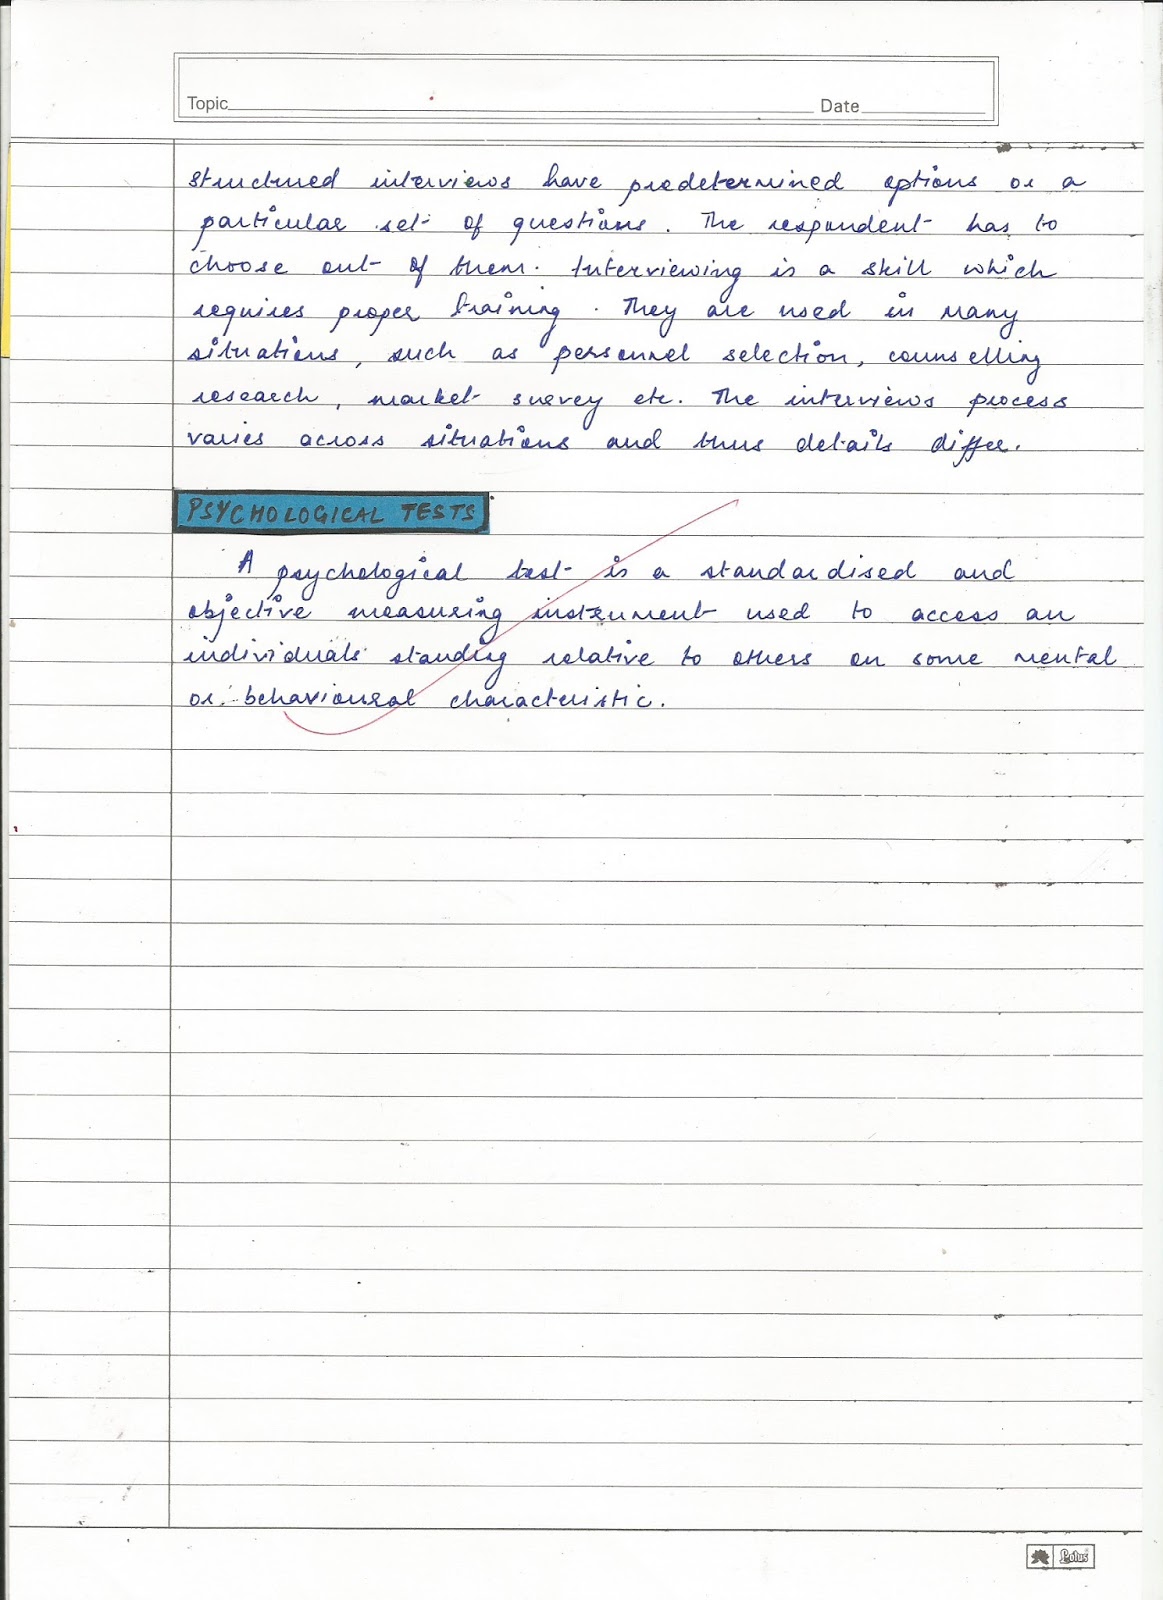 Topic Date
structured interviews have predetermined options or a
particular set of questions. The respondent has to
choose out of them. Interviewing is a skill which
requires proper training. They are used in many
situations, such as personnel selection, counselling
research, market survey etc. The interviews process
varies across situations and thus details differ.
PSYCHOLOGICAL TESTS
A psychological test is a standardised and
objective measuring instrument used to access an
individuals standing relative to others on some mental
or behavioural characteristic.
Lotus